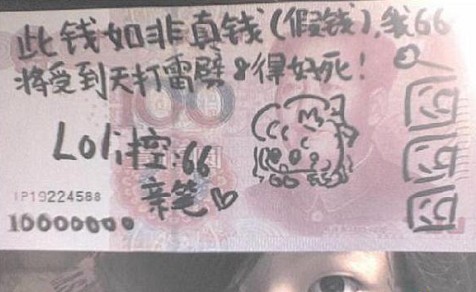 此钱如非真钱(假钱),我66
将受到天打雷劈8得好死!
Loli控:66
亲笔♡
100
IP19224588
10000000